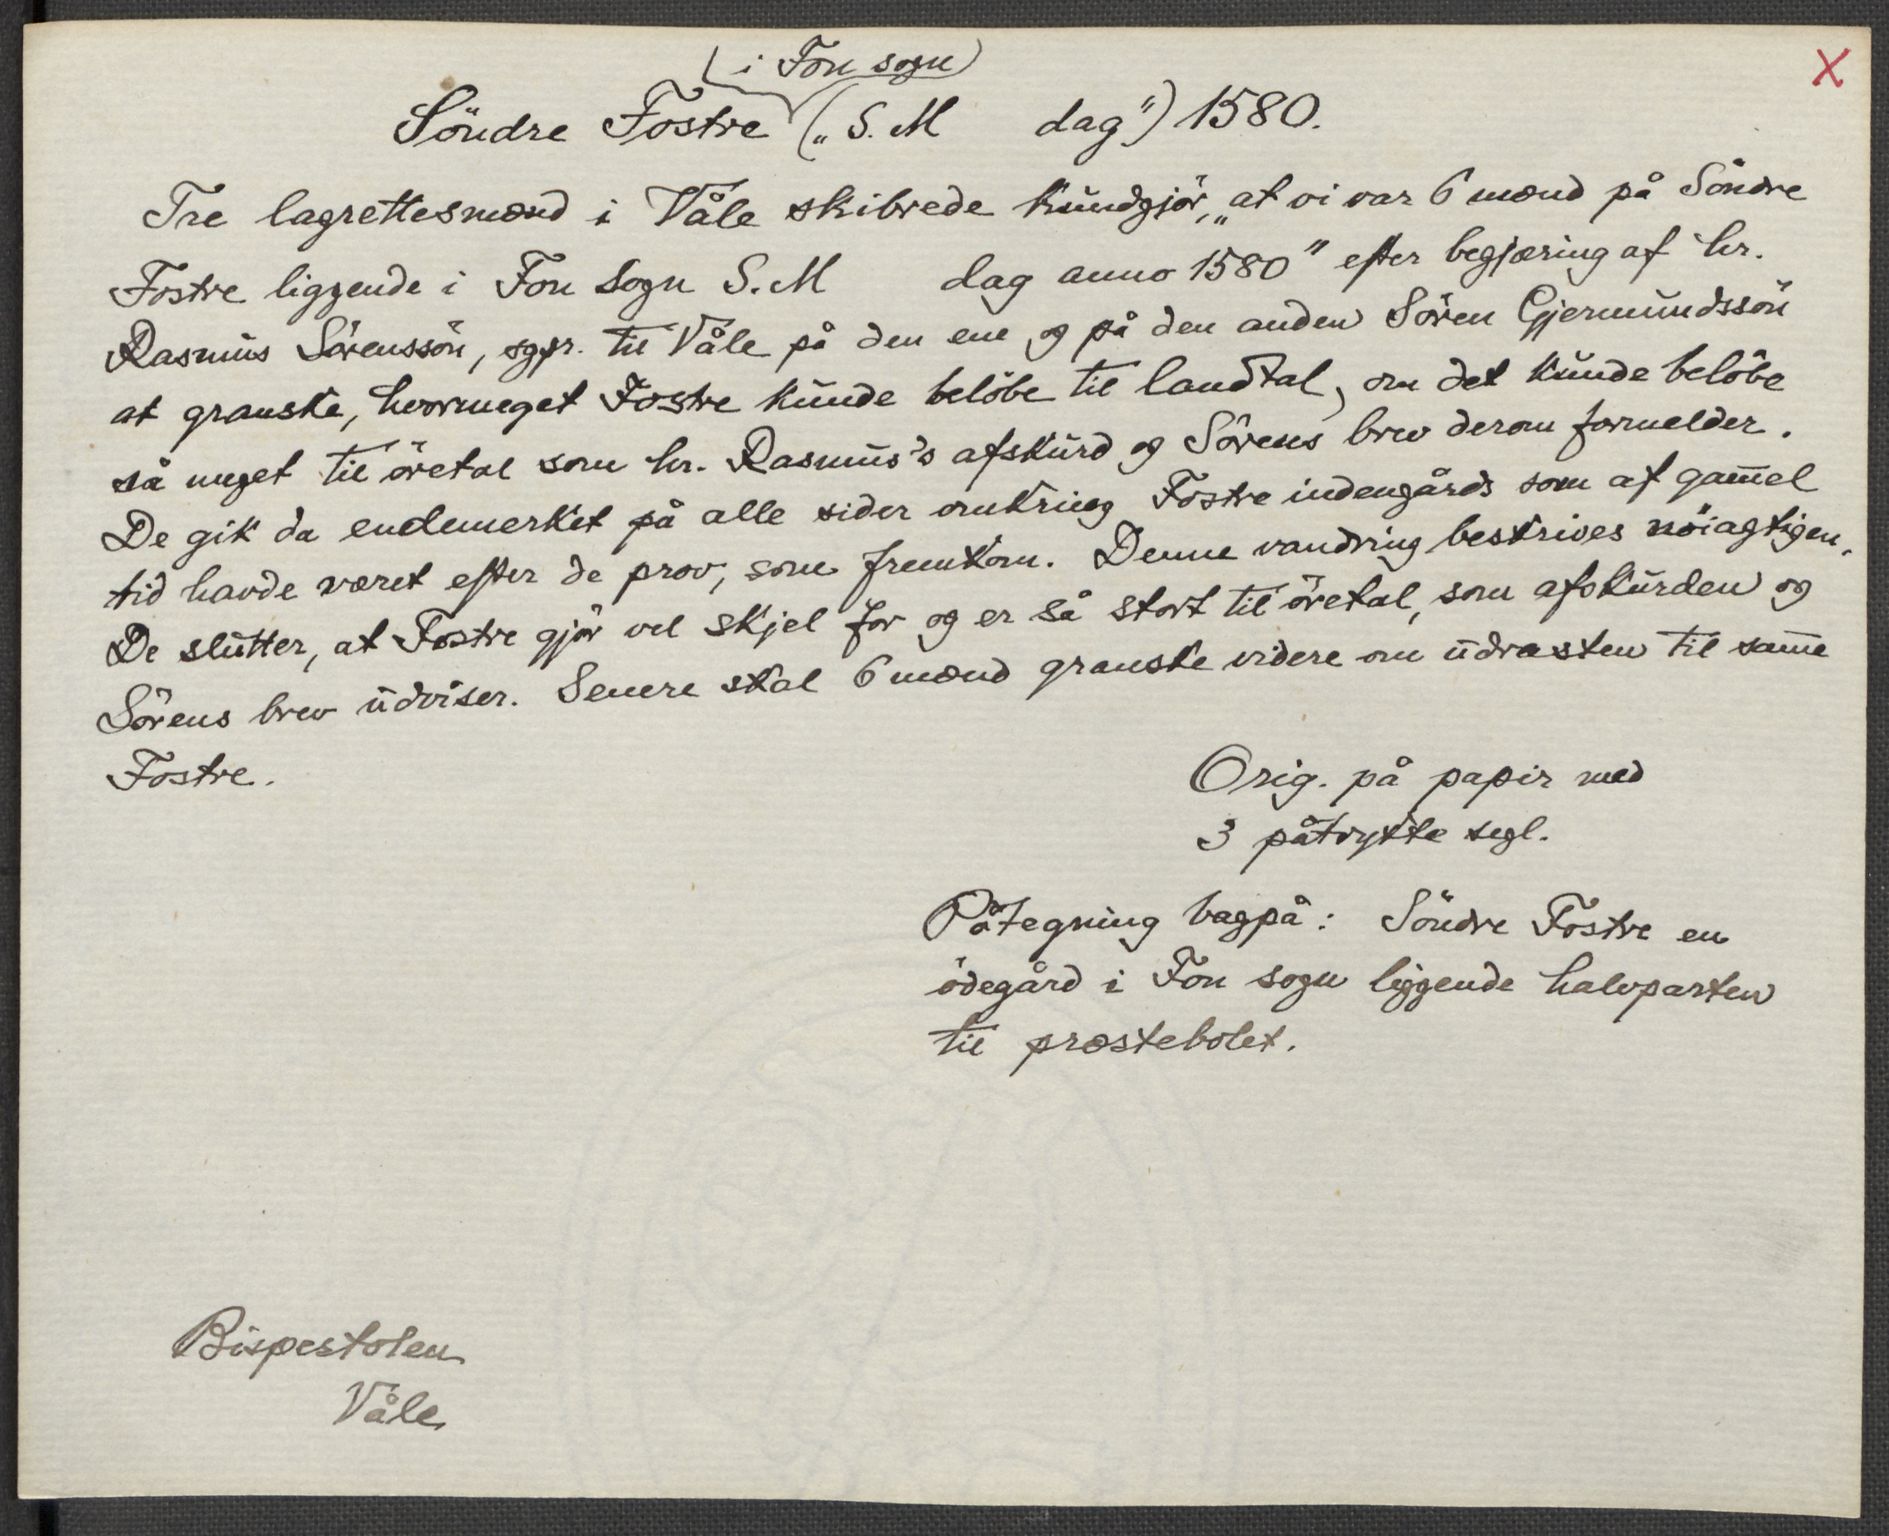 (i Fon sogn)
Söndre Fostre („S. M dag") 1580.
X
Tre lagrettesmænd i Våle skibrede kundgjör, „at vi var 6 mænd på Söndre
Fostre liggende i Fon Sogn S. M dag anno 1580" efter begjæring af hr.
Rasmus Sörenssön, sgpr. til Våle på den ene og på den anden Sören Gjermundssön
at granske, hvormeget Fostre kunde belöbe til landtal, om det kunde belöbe
så meget til öretal som hr. Rasmus's afskurd og Sörens brev derom formelder.
De gik da endemerket på alle sider omkring Fostre indengårds som af gam̄el
tid havde været efter de prov, som fremkom. Denne vandring beskrives nöiagtigen.
De slutter, at Fostre gjör vel skjel for og er så stort til öretal, som afskurden og
Sörens brev udviser. Senere skal 6 mænd granske videre om udrasten til sam̄e
Fostre.
Orig. på papir med
3 påtrykte segl.
Påtegning bagpå: Söndre Fostre en
ödegård i Fon sogn liggende halvparten
til præstebolet.
Bispestolen
Våle